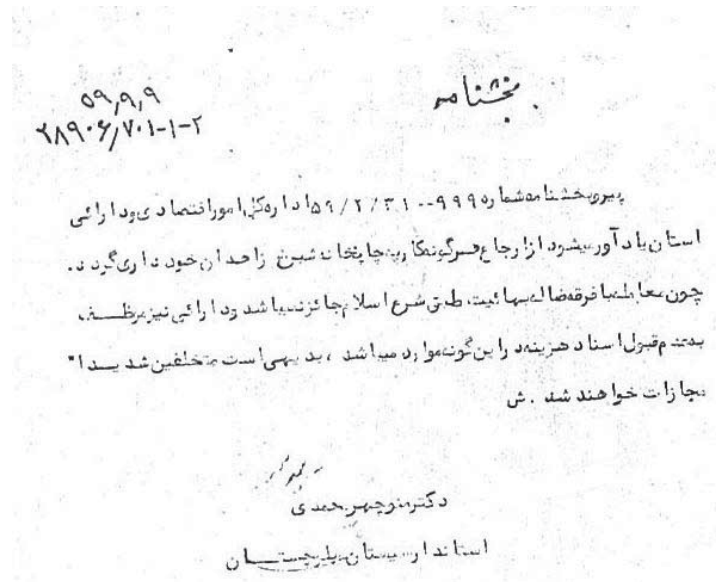 بخشنامه
۵۹,۹,۹
۲۸۹۰۶/۷۰۱-۱-۲
پیرو بخشنامه شماره ۹۹۹-- ۵۹/۲/۳۱ اداره کل امور اقتصادی و دارائی
استان یادآور میشود از ارجاع هرگونه کار به چاپخانه شیخ زاهدان خودداری گردد.
چون معامله با فرقه ضاله بهائیت طبق شرع اسلام جائز نمیباشد و دارائی نیز موظف
بعدم قبول اسناد هزینه در این گونه موارد میباشد ، بدیهی است متخلفین شدیدا"
مجازات خواهند شد . ش
دکتر منوچهر حمدی
استاندار سیستان بلوچستان